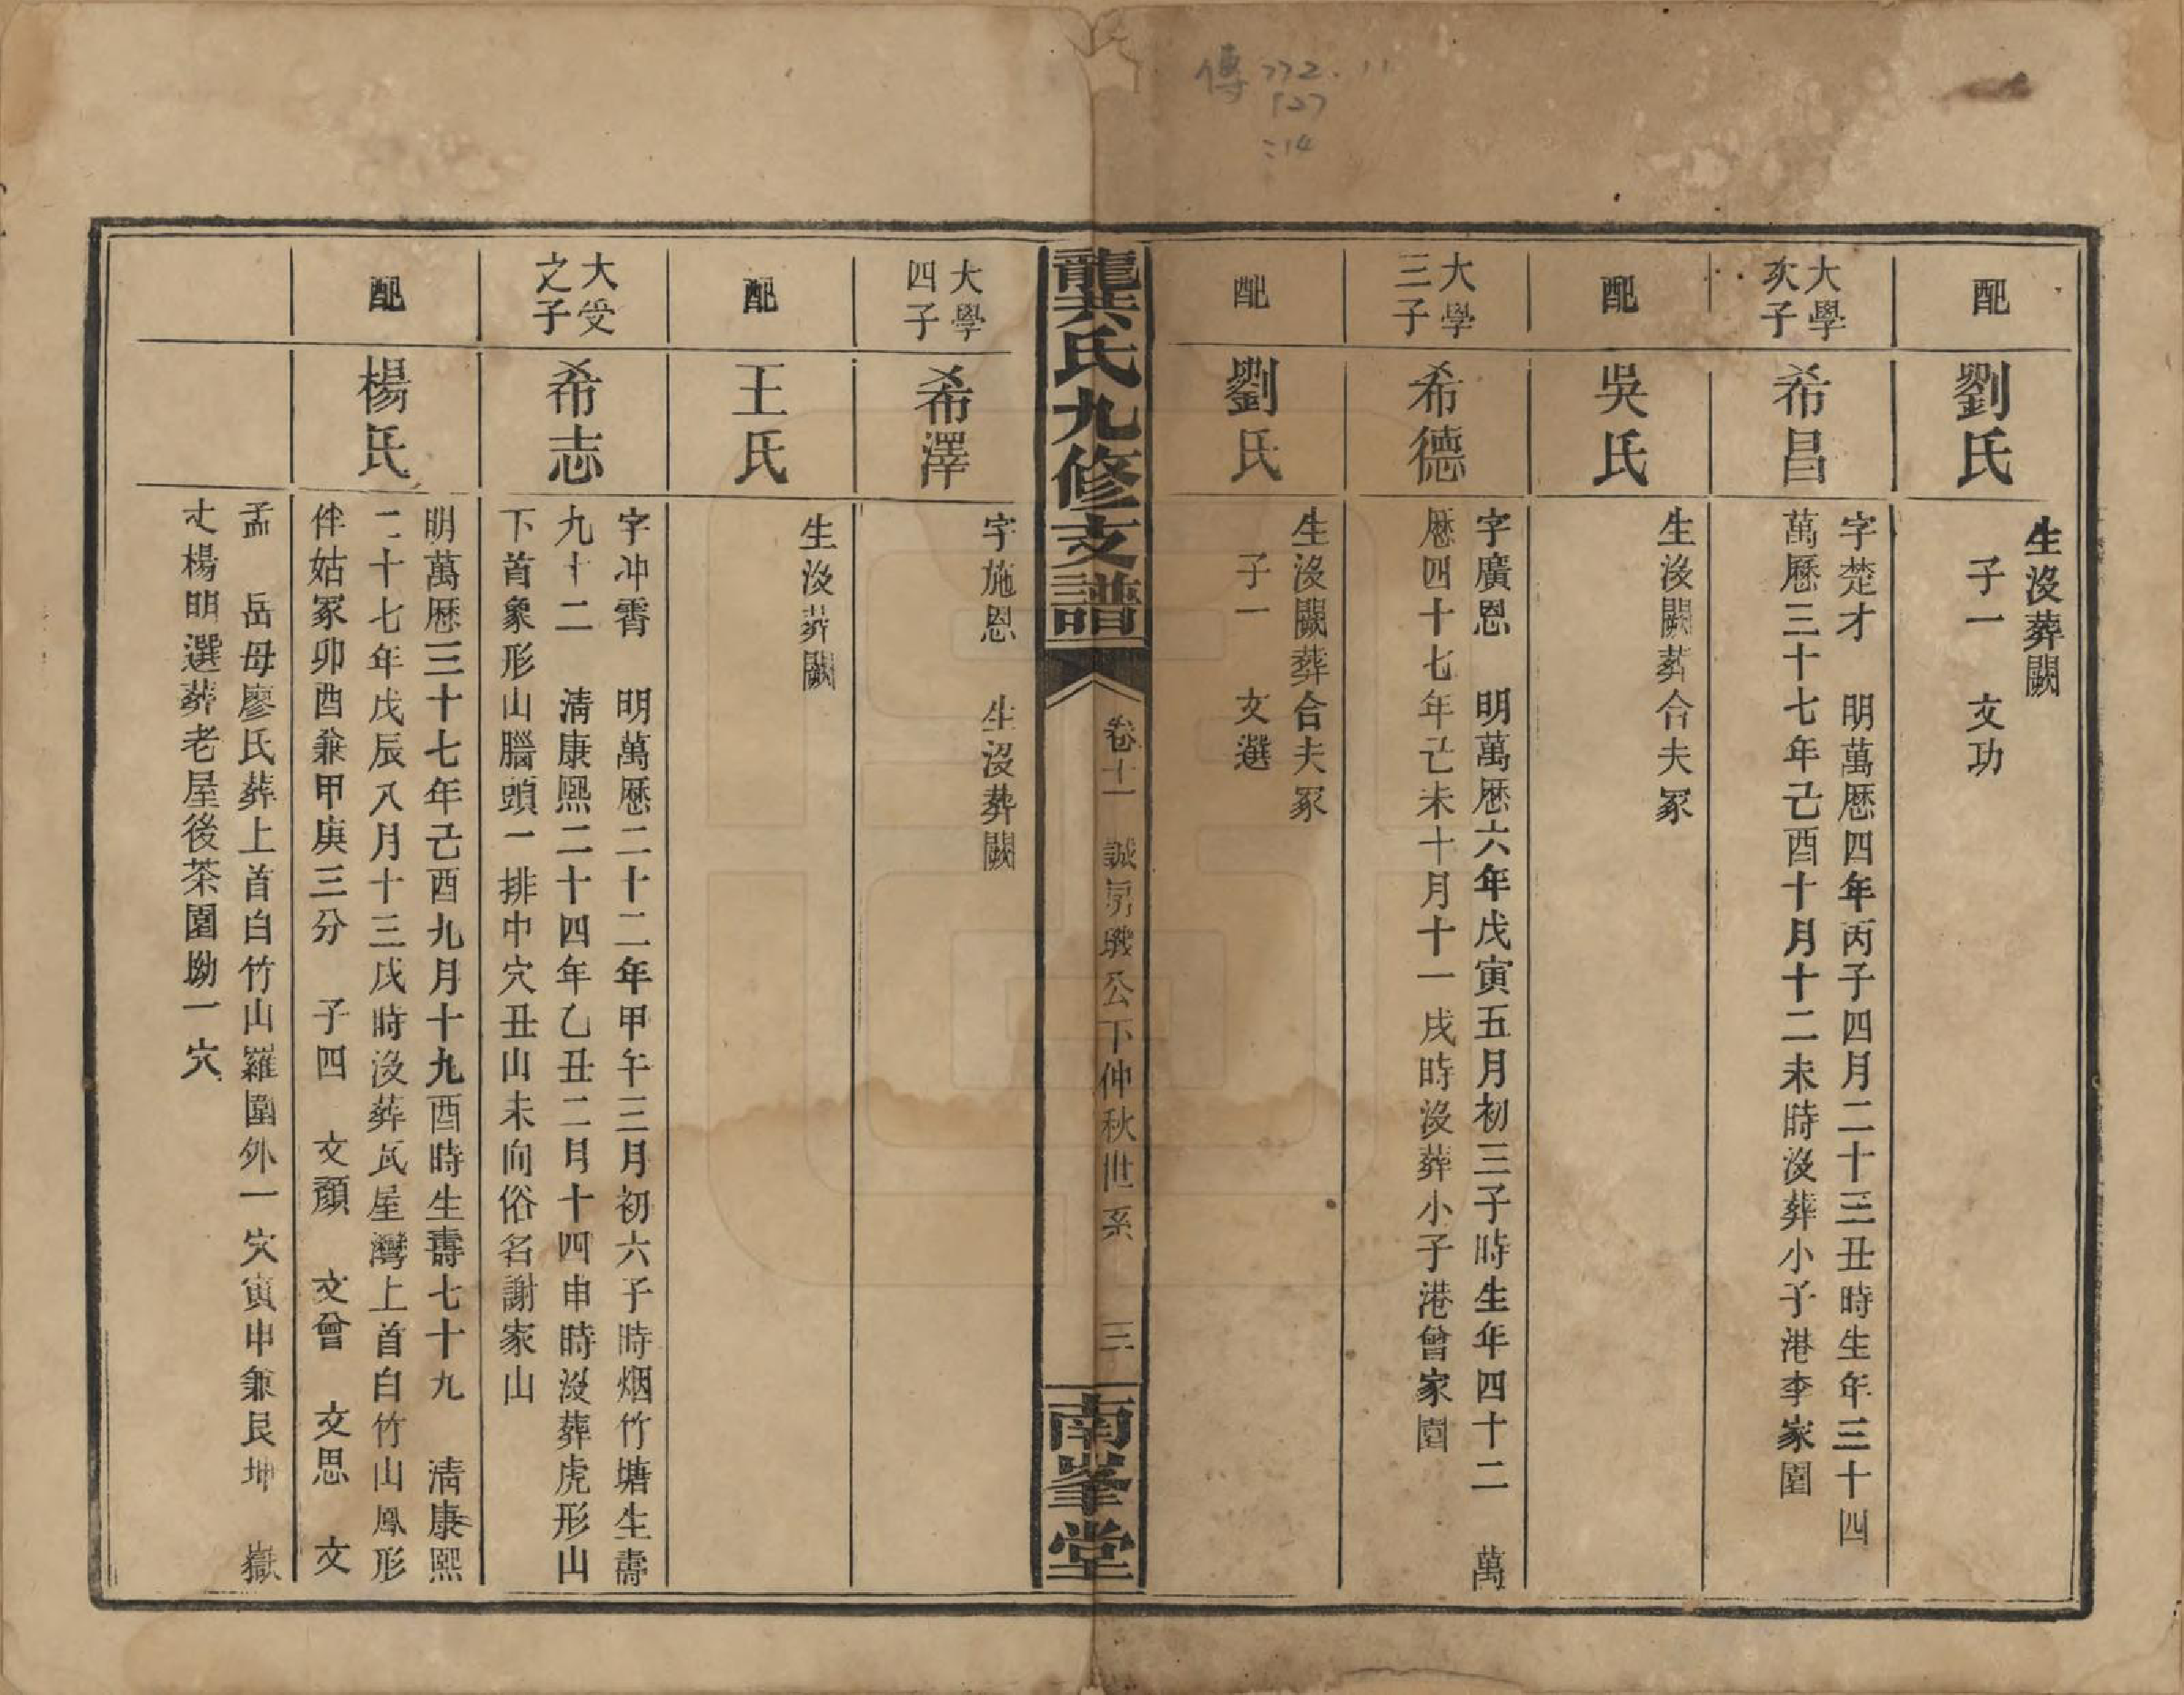 傳 772.11
527
:14
配
劉氏
生沒葬闕
子一 文功
大學
次子
希昌
字楚才 明萬歷四年丙子四月二十三丑時生年三十四
萬歷三十七年己酉十月十二未時沒葬小子港李家園
配
吳氏
生沒闕葬合夫冢
大學
三子
希德
字廣恩 明萬歷六年戊寅五月初三子時生年四十二 萬
歷四十七年己未十月十一戌時沒葬小子港曾家園
配
劉氏
生沒闕葬合夫冢
子一 文選
龔氏九修支譜
卷十一 誠 公下仲秋世系 三
南峯堂
大學
四子
希澤
字施恩 生沒葬闕
配
王氏
生沒葬闕
大受
之子
希志
字冲霄 明萬歷二十二年甲午三月初六子時烟竹塘生壽
九十二 清康熙二十四年乙丑二月十四申時沒葬虎形山
下首象形山腦頭一排中穴丑山未向俗名謝家山
配
楊氏
明萬歷三十七年己酉九月十九酉時生壽七十九 清康熙
二十七年戊辰八月十三戌時沒葬瓦屋灣上首白竹山鳳形
伴姑冢卯酉兼甲庚三分 子四 文顏 文曾 文思 文
孟 岳母廖氏葬上首白竹山羅圍外一穴寅申兼艮坤 嶽
丈楊明選葬老屋後茶園坳一穴